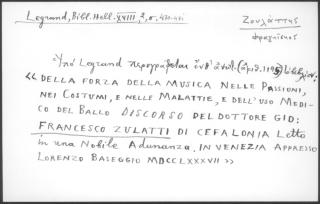 Legrand, Bibl. Hell. XVIII, 2, σ. 430-431
Ζουλάττης
Ὑπὸ Legrand περιγράφεται
« DELLA FORZA DELLA MUSICA NELLE PASSIONI,
NEI COSTUMI, E NELLE MALATTIE, E DELL'USO MEDI-
CO DEL BALLO DISCORSO DEL DOTTORE GIO:
FRANCESCO ZULATTI DI CEFALONIA Letto
in una Nobile Adunanza. IN VENEZIA APPRESSO
LORENZO BASEGGIO MDCCLXXXVII »